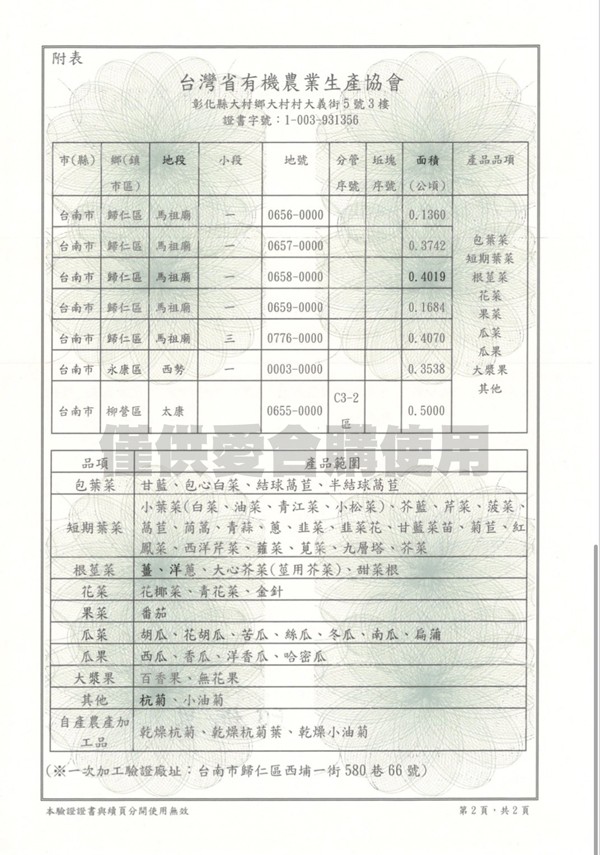 附表
台灣省有機農業生產協會
彰化縣大村鄉大村村大義街5號3樓
證書字號：1-003-931356
市(縣) 鄉(鎮市區) 地段 小段 地號 分管序號 坵塊序號 面積(公頃) 產品品項
台南市 歸仁區 馬祖廟 一 0656-0000 0.1360
台南市 歸仁區 馬祖廟 一 0657-0000 0.3742
台南市 歸仁區 馬祖廟 一 0658-0000 0.4019
台南市 歸仁區 馬祖廟 一 0659-0000 0.1684
台南市 歸仁區 馬祖廟 三 0776-0000 0.4070
台南市 永康區 西勢 一 0003-0000 0.3538
台南市 柳營區 太康 0655-0000 C3-2區 0.5000
包葉菜
短期葉菜
根莖菜
花菜
果菜
瓜菜
瓜果
大漿果
其他
僅供愛合購使用
品項 產品範圍
包葉菜 甘藍、包心白菜、結球萵苣、半結球萵苣
短期葉菜 小葉菜(白菜、油菜、青江菜、小松菜)、芥藍、芹菜、菠菜、
萵苣、茼蒿、青蒜、蔥、韭菜、韭菜花、甘藍菜苗、菊苣、紅
鳳菜、西洋芹菜、蘿菜、莧菜、九層塔、芥菜
根莖菜 薑、洋蔥、大心芥菜(莖用芥菜)、甜菜根
花菜 花椰菜、青花菜、金針
果菜 番茄
瓜菜 胡瓜、花胡瓜、苦瓜、絲瓜、冬瓜、南瓜、扁蒲
瓜果 西瓜、香瓜、洋香瓜、哈密瓜
大漿果 百香果、無花果
其他 杭菊、小油菊
自產農產加工品 乾燥杭菊、乾燥杭菊葉、乾燥小油菊
(※一次加工驗證廠址：台南市歸仁區西埔一街580巷66號)
本驗證證書與續頁分開使用無效
第2頁，共2頁